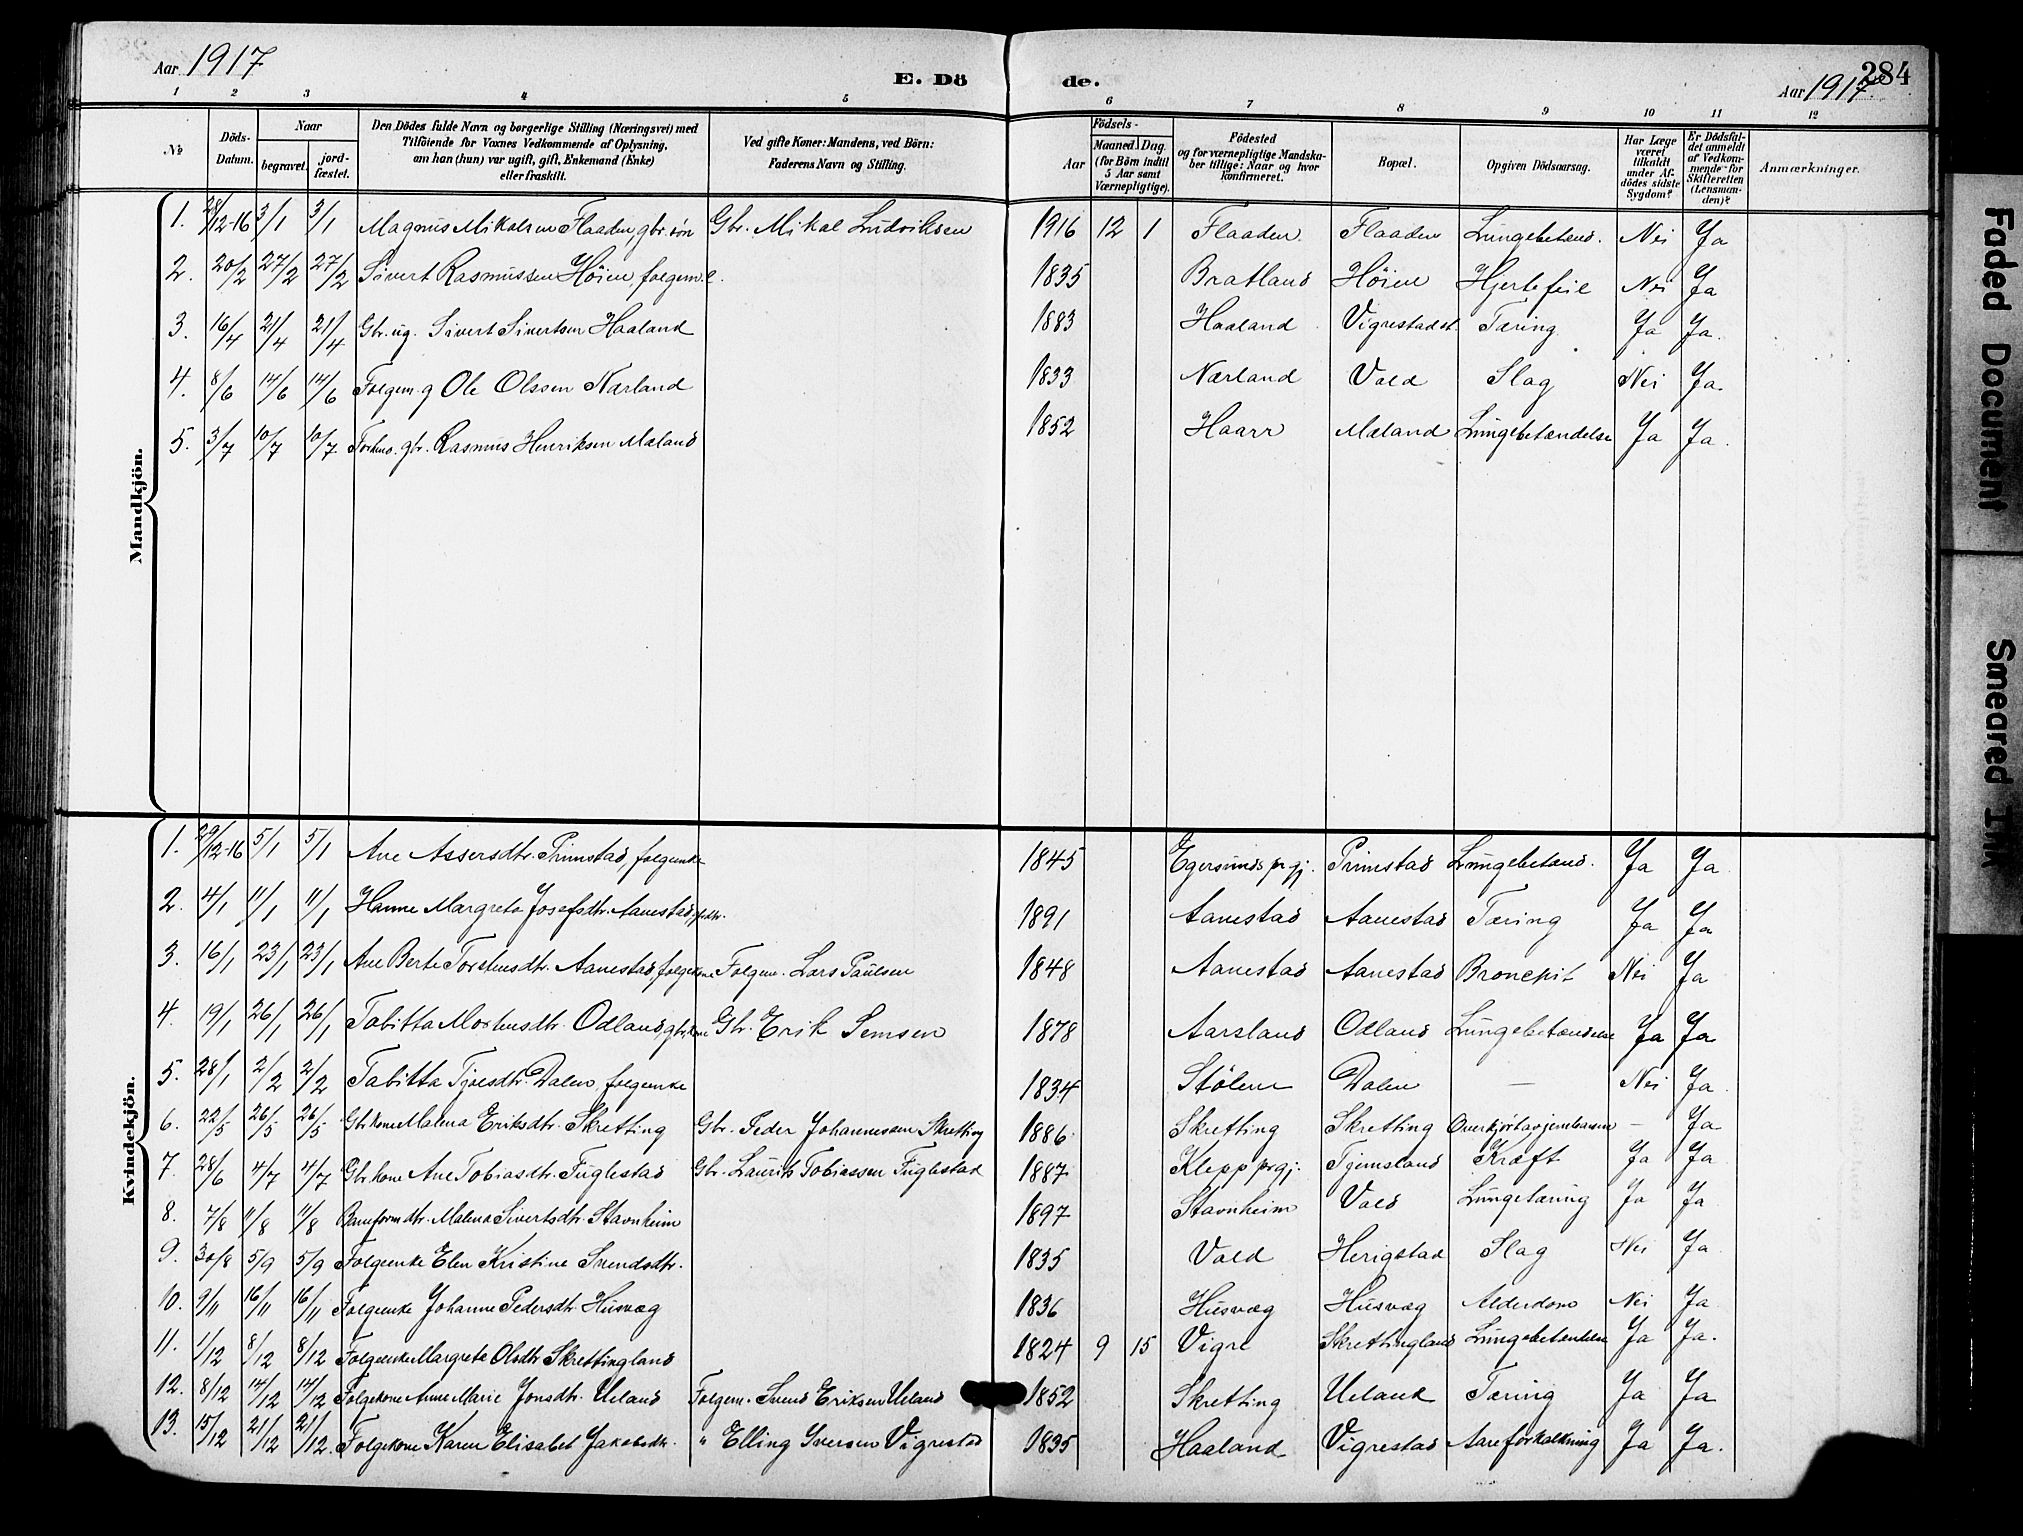 Aar 1917
E. Dö de.
Aar 1917
284
1 2 3 4 5 6 7 8 9 10 11 12
№
Döds-Datum.
Naar
begravet.
jord-fæstet.
Den Dödes fulde Navn og borgerlige Stilling (Næringsvei) med
Tilföiende for Voxnes Vedkommende af Oplysning,
om han (hun) var ugift, gift, Enkemand (Enke)
eller fraskilt.
Ved gifte Koner: Mandens, ved Börn:
Faderens Navn og Stilling.
Födsels-
Aar
Maaned. Dag.
(for Börn indtil
5 Aar samt
Værnepligtige).
Födested
og for værnepligtige Mandska-
ber tillige: Naar og hvor
konfirmeret.
Bopæl.
Opgiven Dödsaarsag.
Har Læge
været
tilkaldt
under Af-
dödes sidste
Sygdom?
Er Dödsfal-
det anmeldt
af Vedkom-
mende for
Skifteretten
(Lensman-
den)?
Anmærkninger.
Mandkjön.
1. 28/12-16 3/1 3/1 Magnus Mikalsen Flaaden, gbr. sön Gbr. Mikal Ludviksen 1916 12 1 Flaaden Flaaden Lungebetænd. Nei Ja
2. 20/2 27/2 27/2 Sivert Rasmussen Höien, folgem. e. 1835 Bratland Höien Hjertefeil Nei Ja
3. 16/4 21/4 21/4 Gbr. ug. Sivert Sivertsen Haaland 1883 Haaland Vigrestad st. Tæring Ja Ja.
4. 8/6 14/6 14/6 Folgem. g Ole Olssen Nærland 1833 Nærland Vold Slag Nei Ja.
5. 3/7 10/7 10/7 gbr. Rasmus Henriksen Mæland 1852 Haarr Mæland Lungebetændelse Ja Ja.
Kvindekjön.
1. 29/12-16 5/1 5/1 Ane Assersdtr. Primstad, folgenke 1845 Egersunds prgj. Primstad Lungebetænd. Ja Ja
2. 4/1 11/1 11/1 Hanne Margreta Josefsdtr. Aanestad, 1891 Aanestad Aanestad Tæring Ja Ja
3. 16/1 23/1 23/1 Ane Berte Torstensdtr. Aanestad, folgekone Folgem. Lars Paulsen 1848 Aanestad Aanestad Bronckit Nei Ja
4. 19/1 26/1 26/1 Tobitta Mortensdtr. Odland, gbrkone Gbr. Erik Semsen 1878 Aarsland Odland Lungebetændelse Ja Ja
5. 28/1 2/2 2/2 Tabitta Tjoesdtr. Dalen, folgenke 1834 Stölen Dalen — Nei Ja
6. 22/5 26/5 26/5 Gbrkone Malena Eriksdtr. Skretting Gbr. Peder Johannessen Skretting 1886 Skretting Skretting Overkjört av jernbanen — Ja
7. 28/6 4/7 4/7 Gbrkone Ane Tobiasdtr. Fuglestad Gbr. Laurits Tobiassen Fuglestad 1887 Klepp prgj. Tjemsland Kræft Ja Ja
8. 7/8 11/8 11/8 Baneformdtr. Malena Sivertsdtr. Stavnheim 1897 Stavnheim Vold Lungetæring Ja Ja
9. 30/8 5/9 5/9 Folgeenke Elen Kristine Svendsdtr. 1835 Vold Herigstad Slag Nei Ja
10. 9/11 16/11 16/11 Folgeenke Johanne Pedersdtr. Husvæg 1836 Husvæg Husvæg Alderdom Nei Ja
11. 1/12 8/12 8/12 Folgeenke Margreta Olsdtr. Skrettingland 1824 9 15 Vigre Skrettingland Lungebetændelse Ja Ja.
12. 8/12 14/12 14/12 Folgekone Anne Marie Jonsdtr. Ueland Folgem. Svend Eriksen Ueland 1852 Skretting Ueland Tæring Ja Ja
13. 15/12 21/12 21/12. Folgekone Karen Elisabet Jakobsdtr. " Elling Iversen Vigrestad 1835 Haaland Vigrestad Aareforkalkning Ja Ja.
Faded Document
Smeared Ink